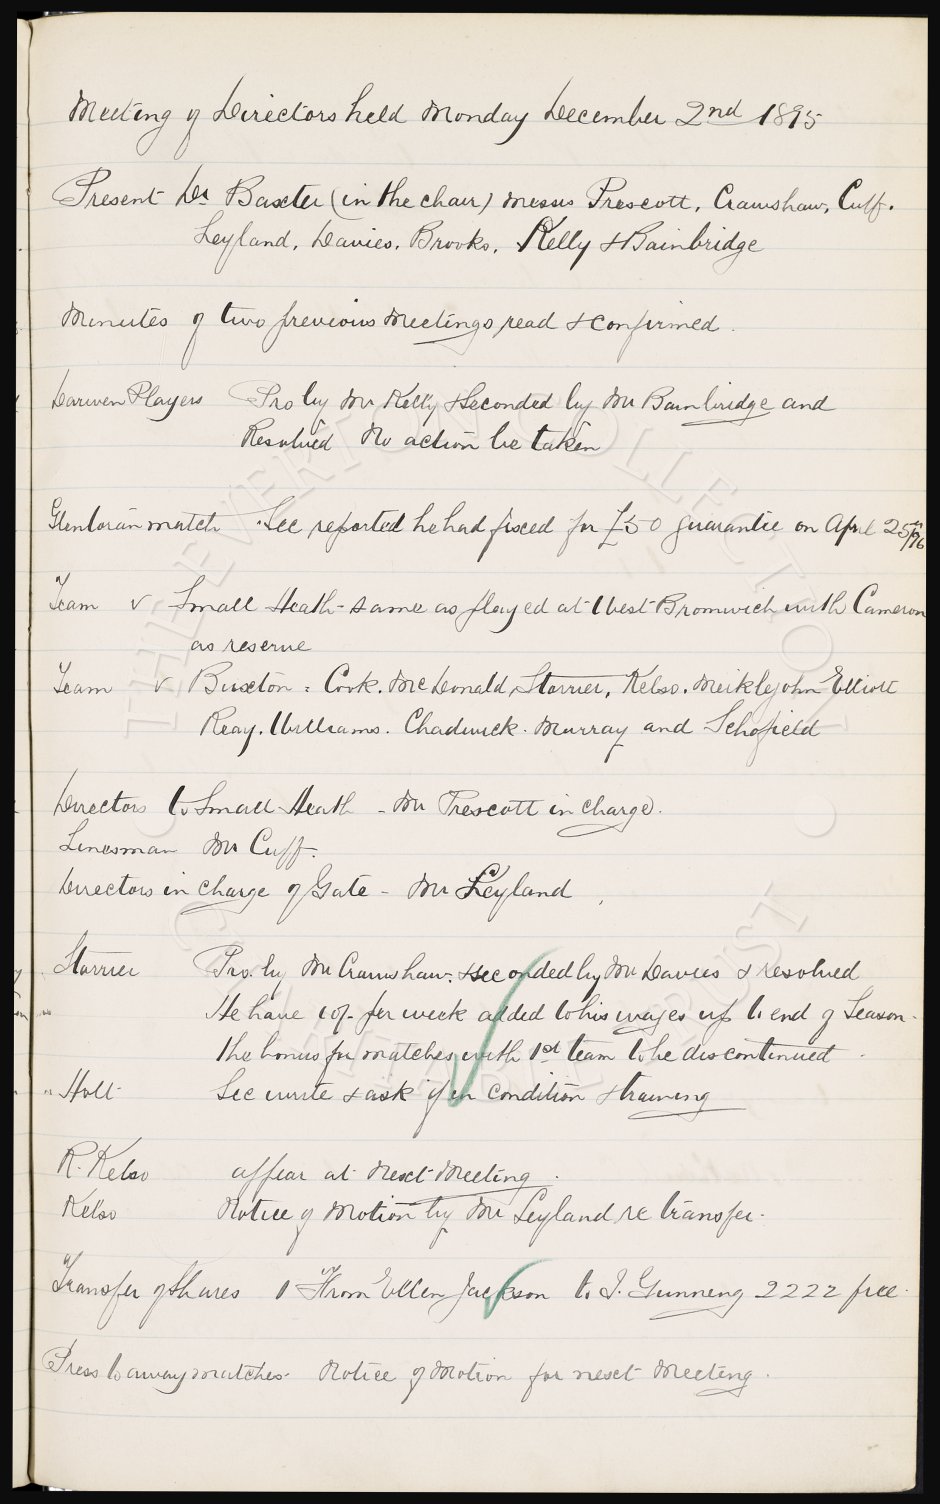 Meeting of Directors held Monday December 2nd 1895
Present Dr Baxter (in the chair) Messrs Prescott, Crawshaw, Cuff.
Leyland, Davies, Brooks, Kelly & Bainbridge
Minutes of two previous Meetings read & confirmed.
Darwen Players Pro by Mr Kelly & Seconded by Mr Bainbridge and
Resolved No action be taken
Glentoran match Sec reported he had fixed for £50 guarantee on April 25th/96
Team v Small Heath - same as played at West Bromwich with Cameron
as reserve
Team v Buxton: Cook. McDonald, Storrier, Kelso. Meiklejohn Elliott
Reay. Williams. Chadwick. Murray and Schofield
Directors to Small Heath - Mr Prescott in charge.
Linesman Mr Cuff.
Directors in charge of Gate - Mr Leyland
Storrier Pro. by Mr Crawshaw. & seconded by Mr Davies & resolved
He have 10/- per week added to his wages up to end of Season.
The bonus for matches with 1st team to be discontinued.
Holt Sec write & ask if in condition & training
R. Kelso appear at Next Meeting.
Kelso Notice of Motion by Mr Leyland re transfer.
Transfer of Shares 1 From Ellen Jackson to J. Gunning 2222 free.
Press to away matches. Notice of Motion for next Meeting.
THE EVERTON COLLECTION
CHARITABLE TRUST